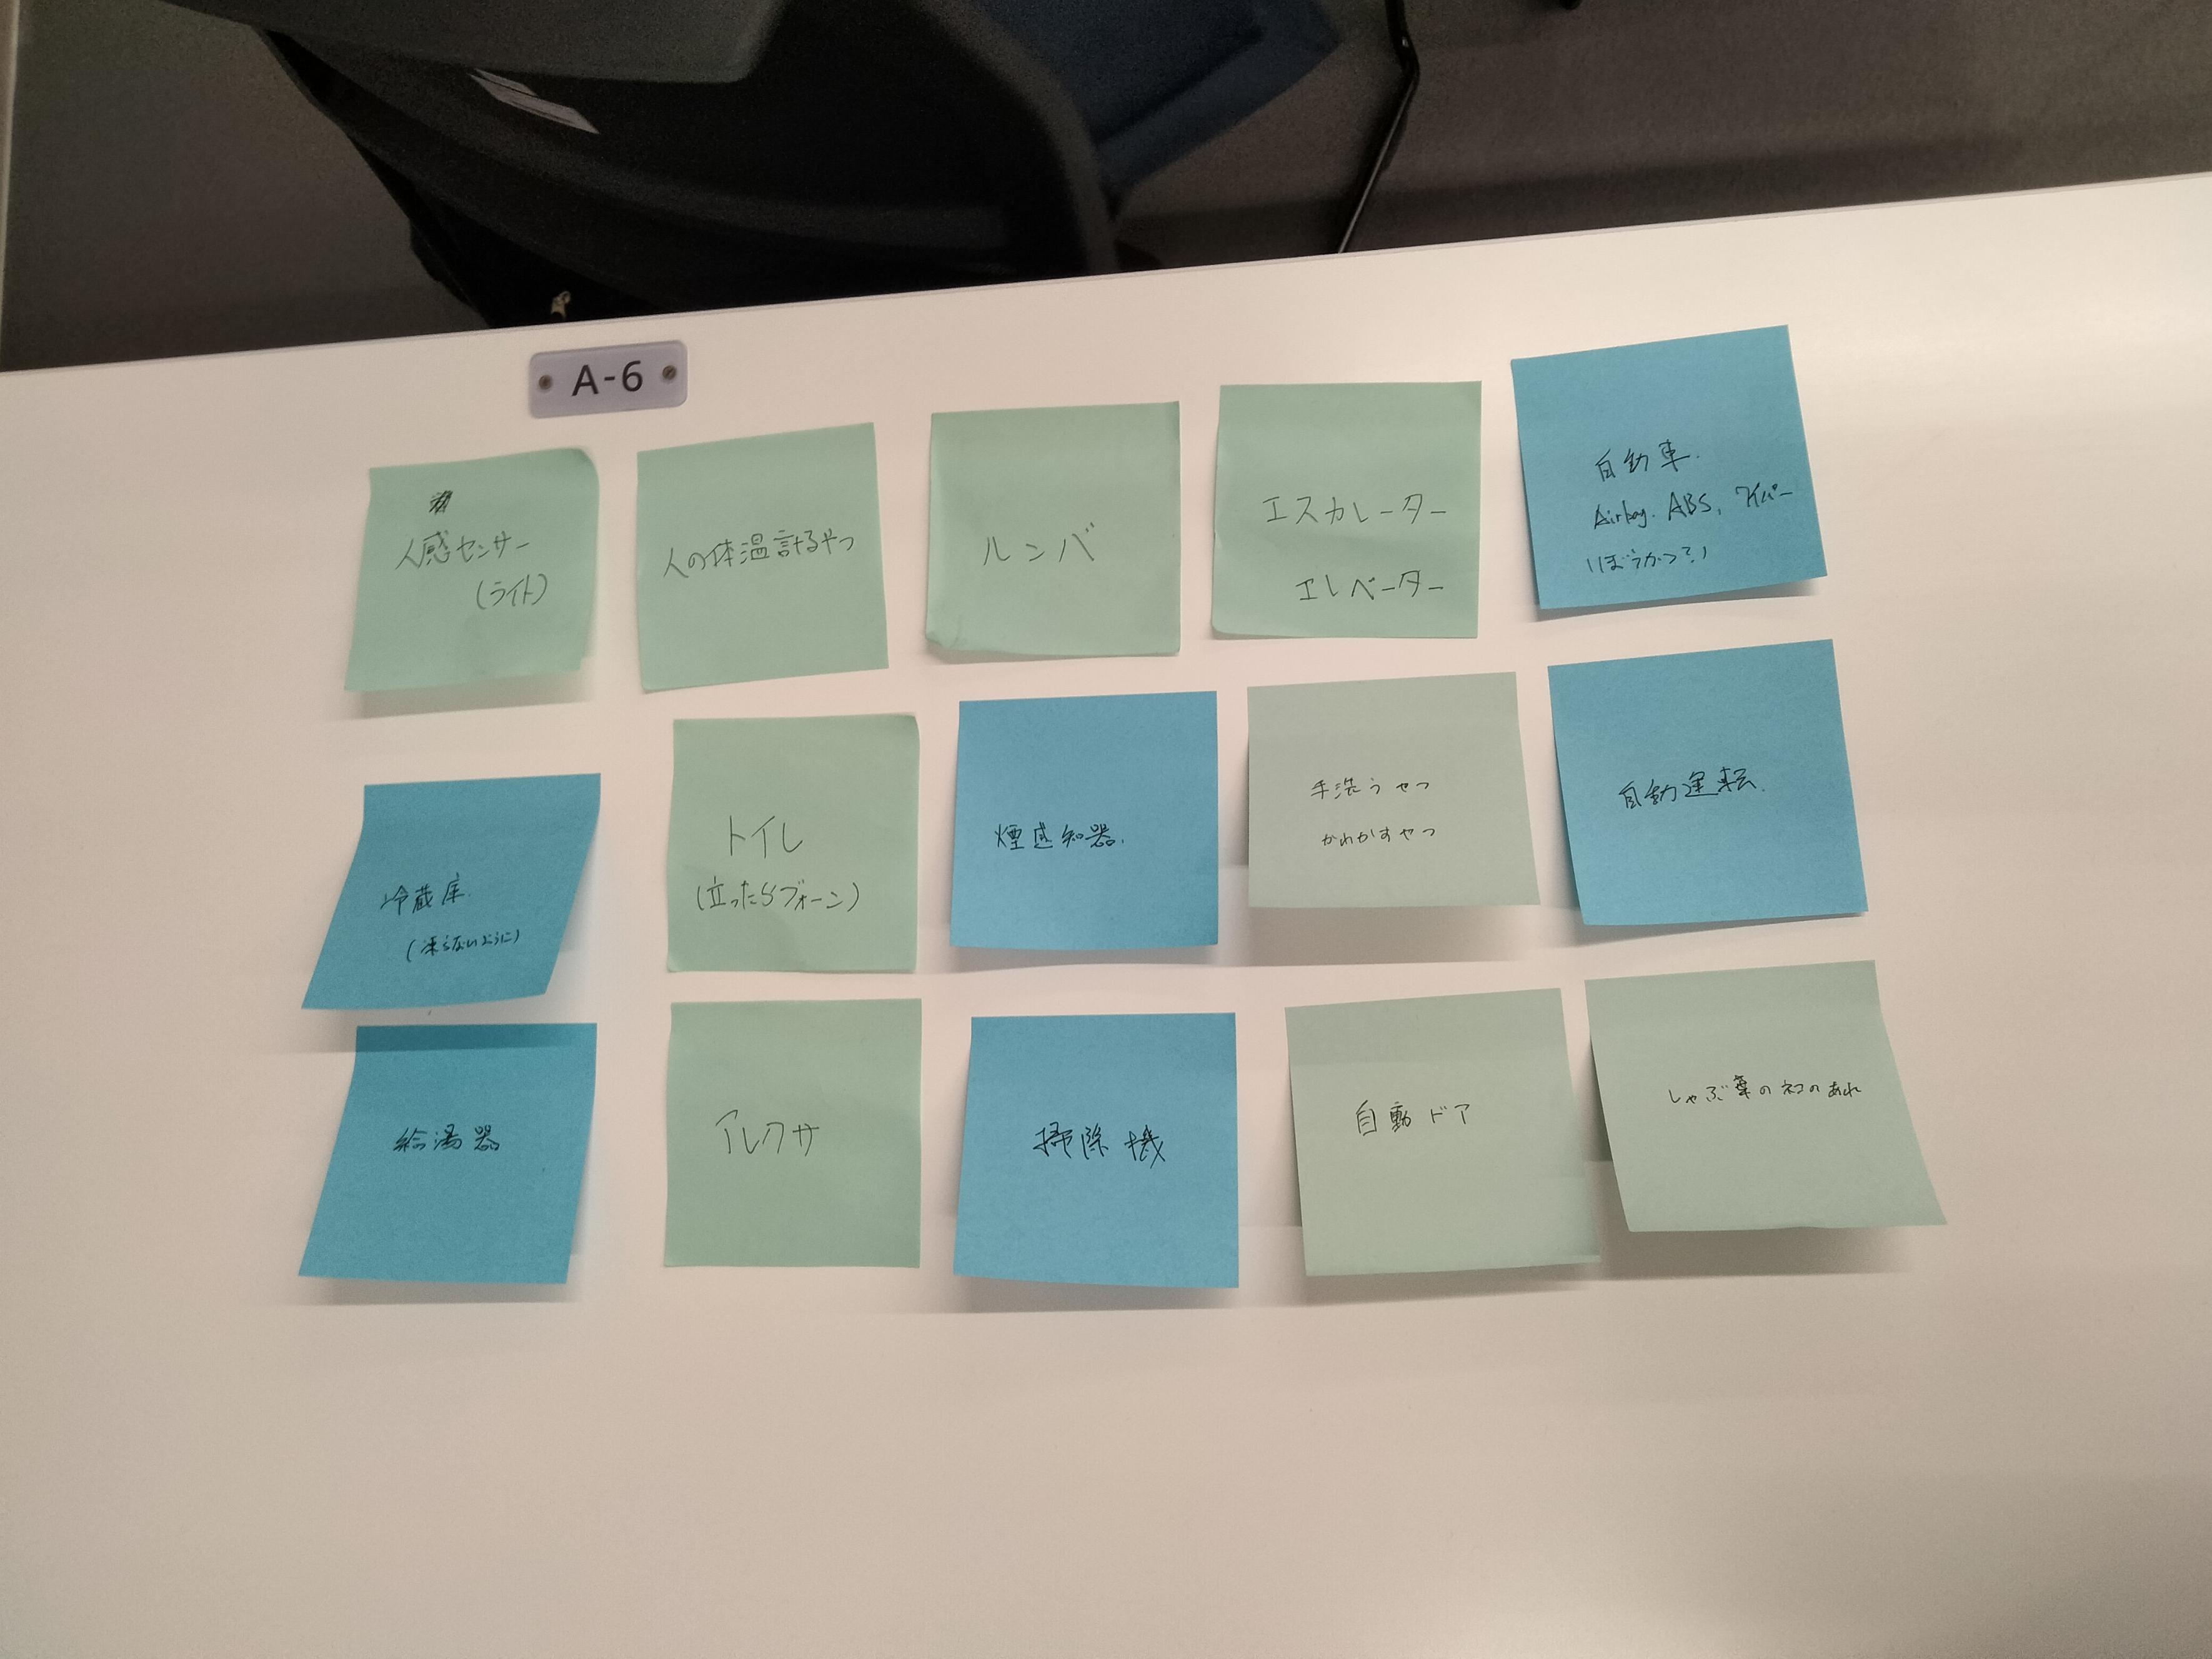 A-6
人感センサー
(ライト)
人の体温計るやつ
ルンバ
エスカレーター
エレベーター
自動車.
Airbag. ABS, ワイパー
冷蔵庫.
(凍らないように)
トイレ
(立ったらブォーン)
煙感知器.
手洗うやつ
かわかすやつ
自動運転.
給湯器
アレクサ
掃除機
自動ドア
しゃぶ葉のネコのあれ